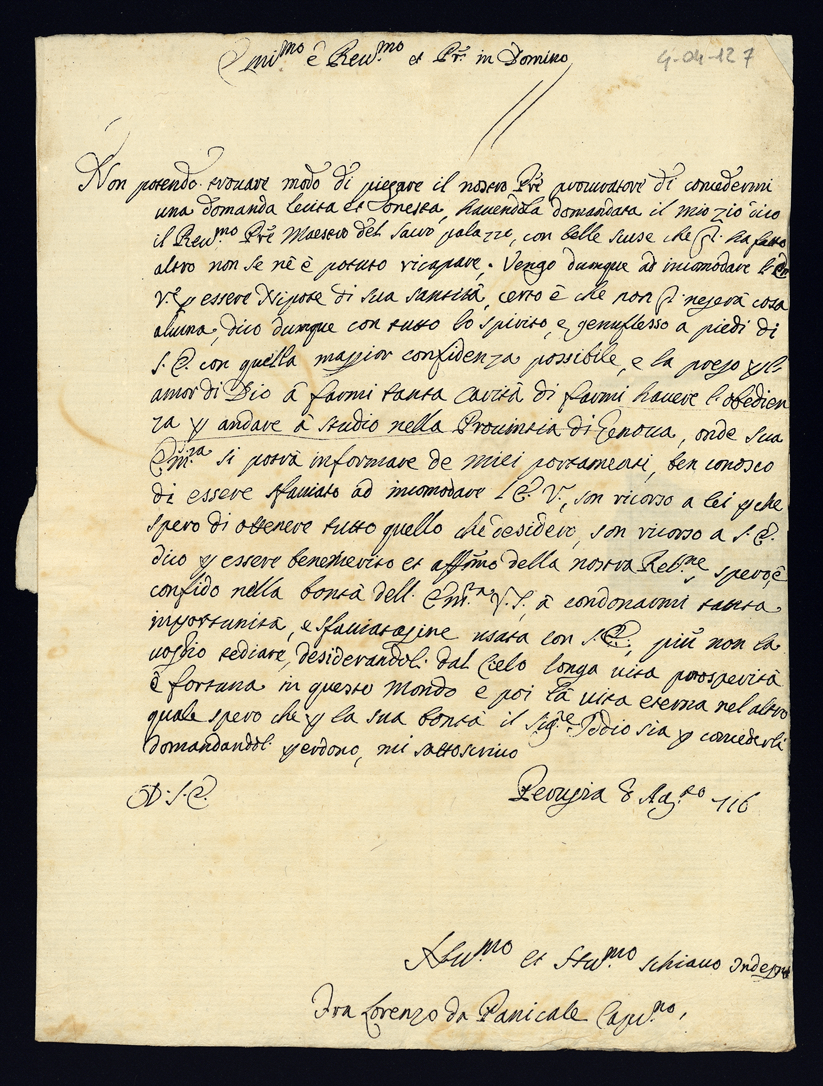 Emi.mo è Reu.mo et Pr̃e in Domino
4-04-127
Non potendo trouare modo di piegare il nostro Pr̃e procuratore di concedermi
una domanda lecita et onesta, hauendola domandata il mio zio cico
il Reu.mo Pr̃e Maestro del Sacro palazzo, con belle scuse che ha fatto
altro non se nè è potuto ricapare. Vengo dunque ad incomodare l'
V.ra p essere Nipote di sua santità, certo è che non negerà cosa
alcuna, dico dunque con tutto lo spirito, e genuflesso a piedi di
S. E. con quella maggior confidenza possibile, e la prego p l'
amor di Dio à farmi tanta carità di farmi hauere l'obedien
za p andare à studio nella Prouintia di Genoua, onde sua
Em.za si potrà informare de miei portamenti, ben conosco
di essere sfacciato ad incomodare l'E. V., son ricorso a lei p che
spero di ottenere tutto quello che desidero, son ricorso a S. E.
dico p essere benemerito et affmo della nostra Rel.ne, spero, è
confido nella bontà dell' Em.za V.S., à condonarmi tanta
importunità, e sfacciatagine usata con S. E., più non la
uoglio tediare, desiderandoli dal Cielo longa uita prosperità
è fortuna in questo Mondo e poi la uita eterna nel altro
quale spero che p la sua bontà il Sig.re Iddio sia p concederli
domandandoli perdono, mi sottoscriuo
D. S. E.
Perugia 8 Ag.to 116
et schiauo Indegno
Fra Lorenzo da Panicale Capu.no,